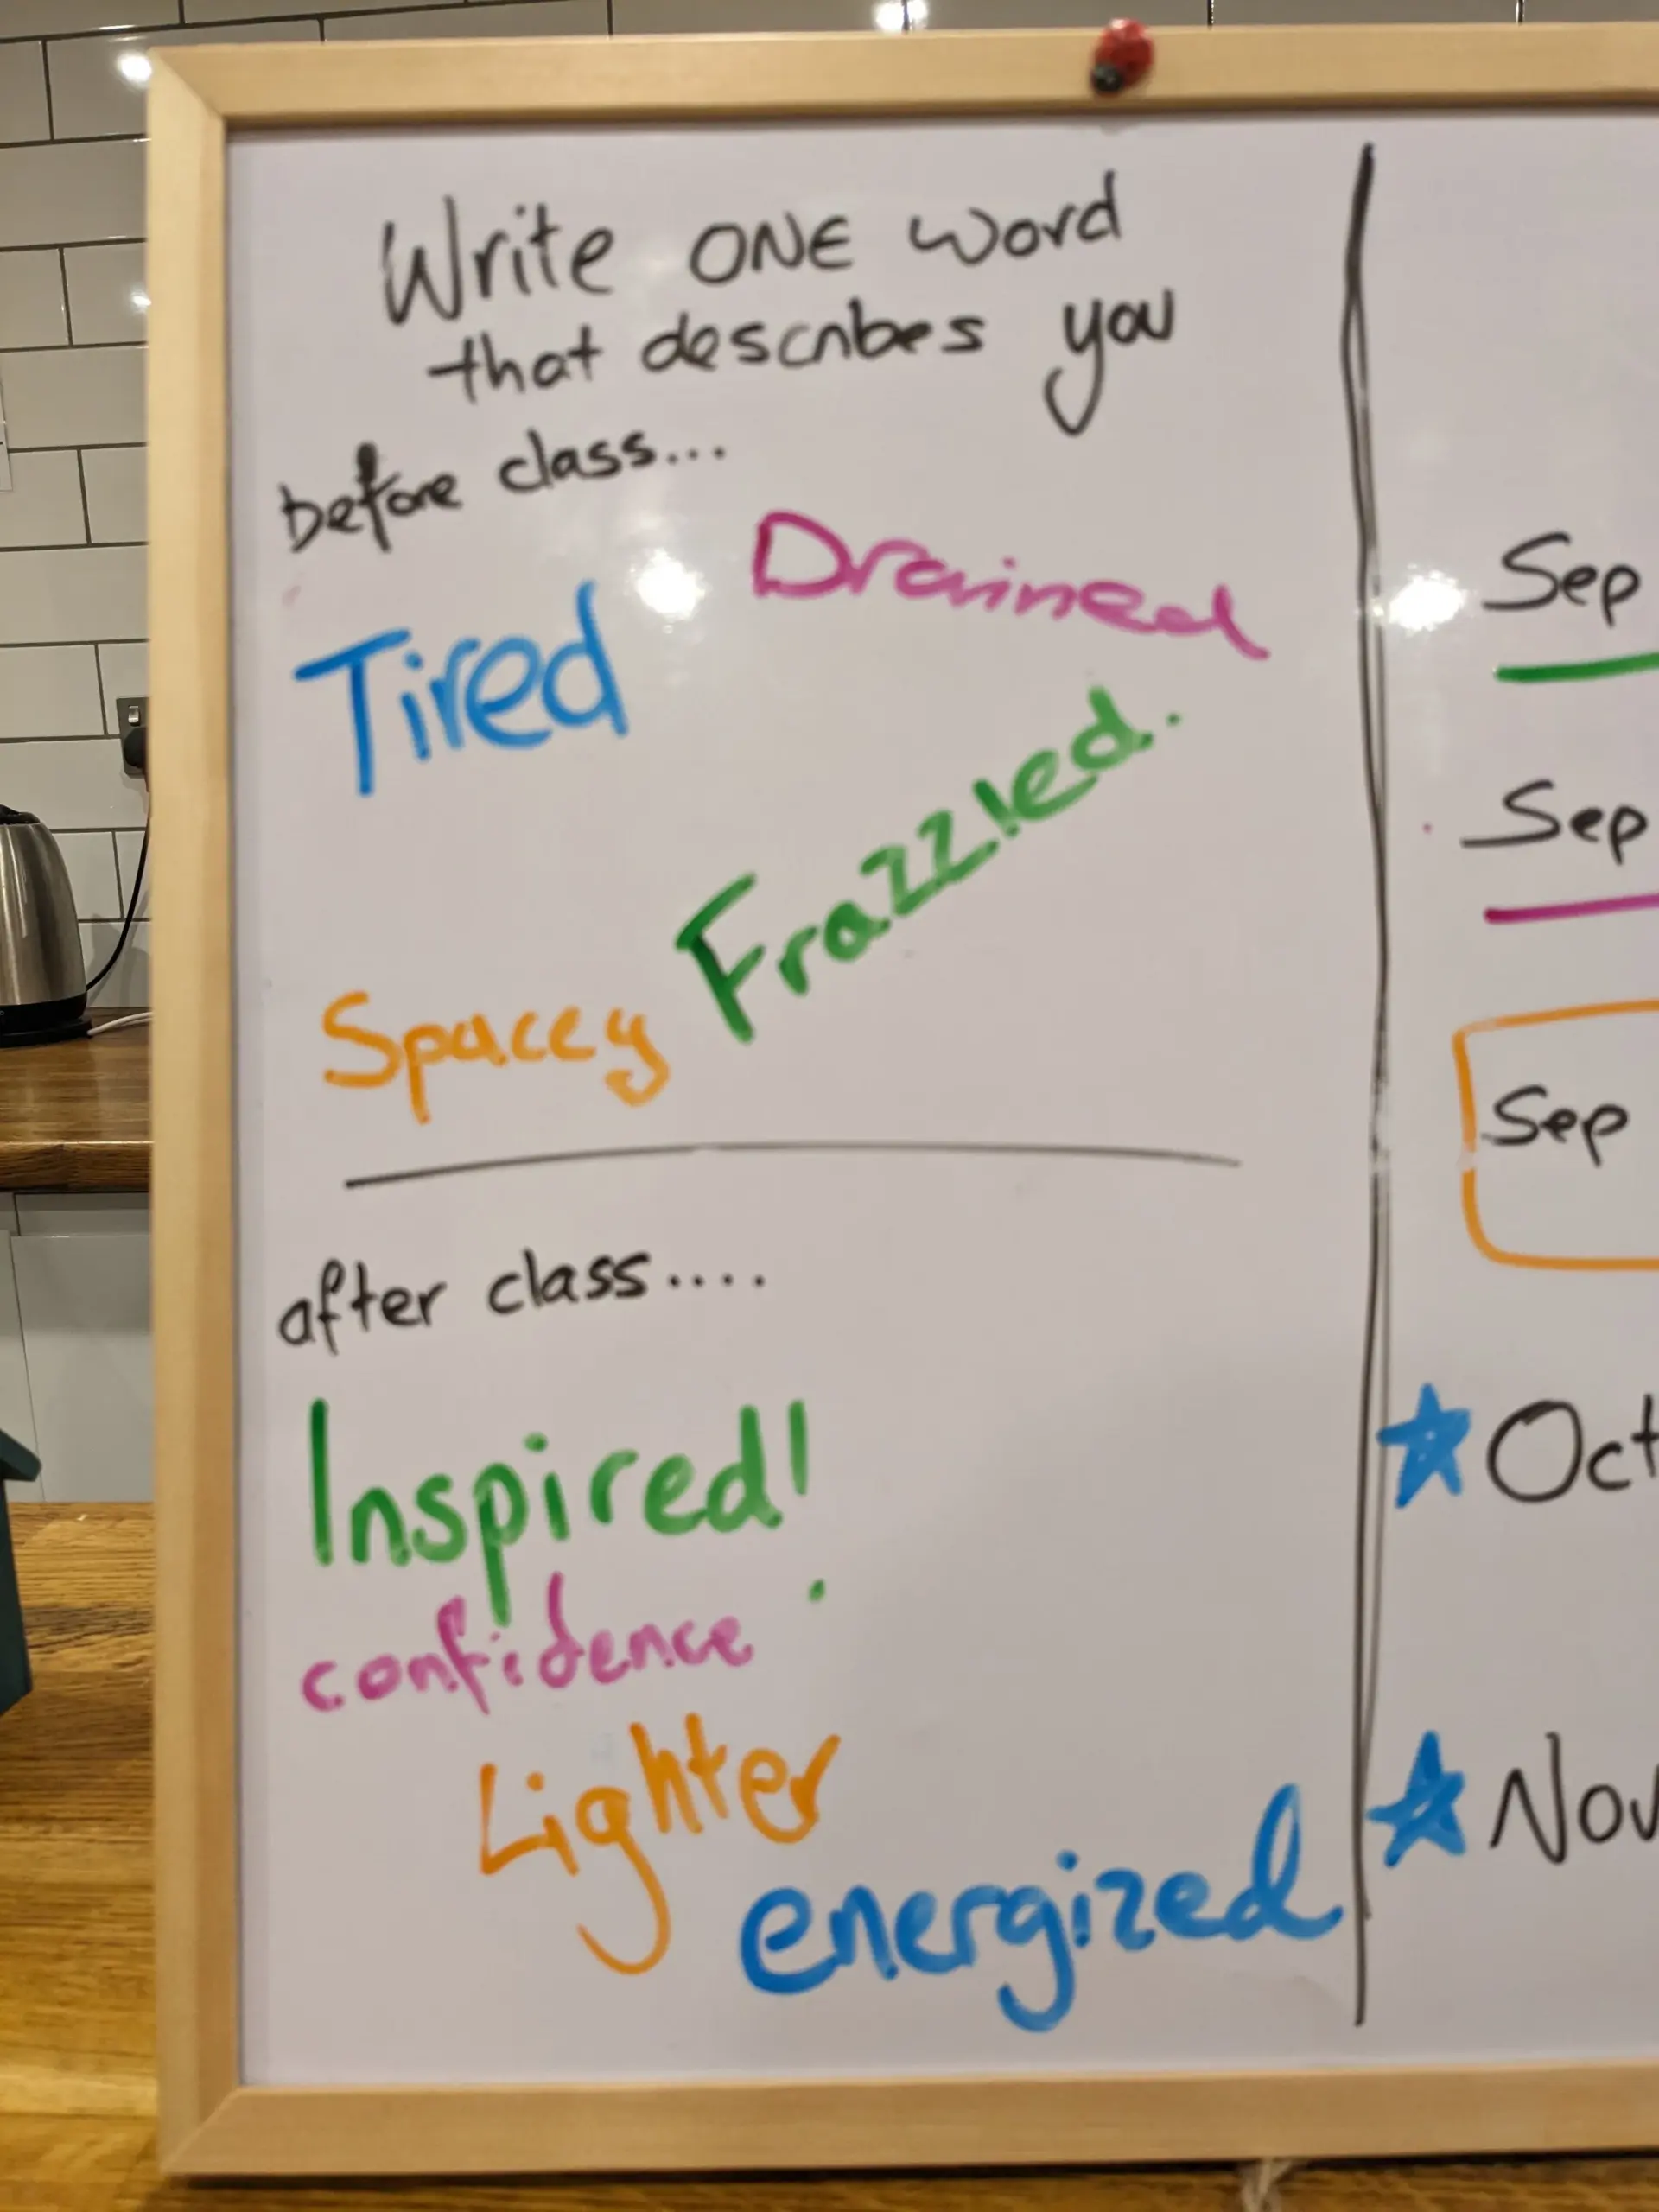 Write ONE word
that describes you
before class...
Drained
Tired
Frazzled.
Spacey
after class....
Inspired!
confidence
Lighter
energized
Sep
Sep
Sep
Oct
Nov